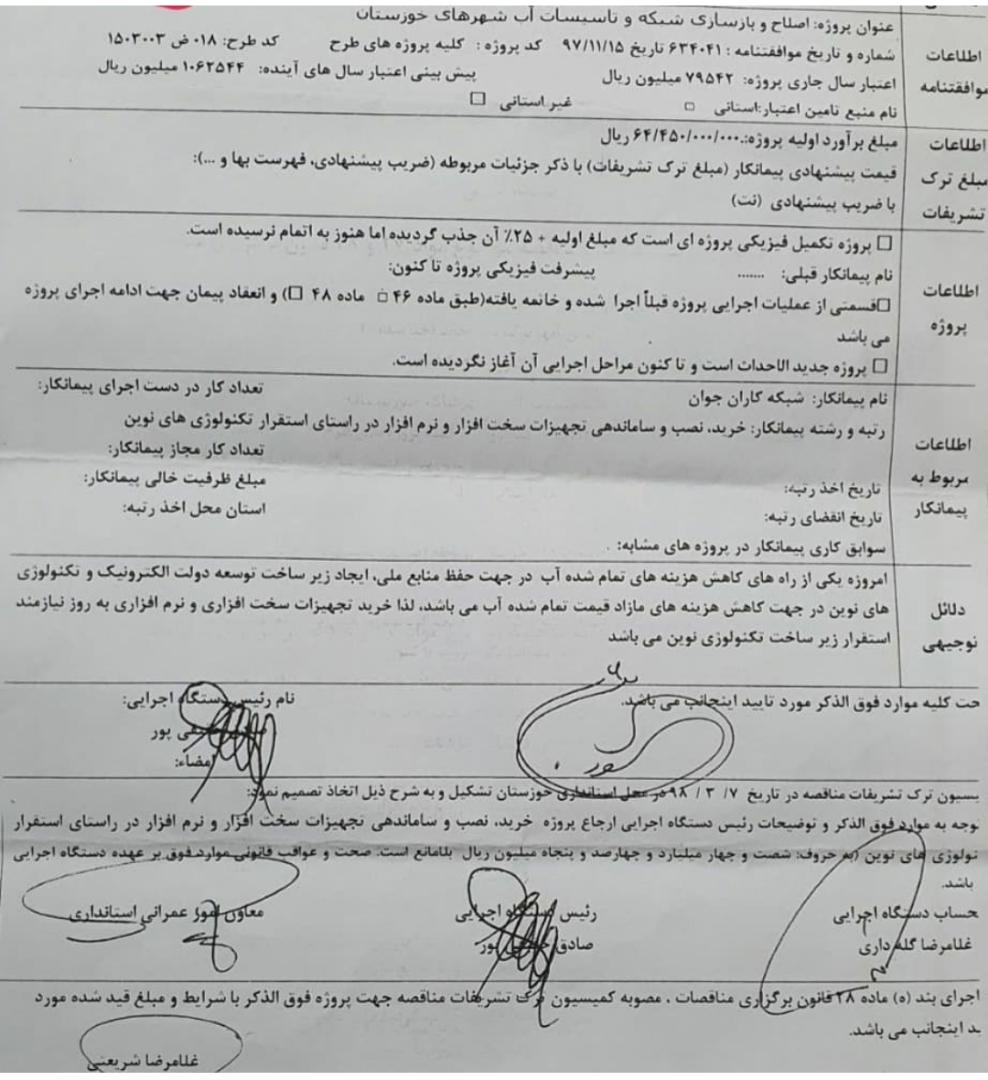 عنوان پروژه: اصلاح و بازسازی شبکه و تاسیسات آب شهرهای خوزستان
اطلاعات موافقتنامه
شماره و تاریخ موافقتنامه : ۶۳۴۰۴۱ تاریخ ۹۷/۱۱/۱۵ کد پروژه : کلیه پروژه های طرح کد طرح: ۰۱۸ ض ۱۵۰۳۰۰۳
اعتبار سال جاری پروژه: ۷۹۵۴۲ میلیون ریال پیش بینی اعتبار سال های آینده: ۱۰۶۲۵۴۴ میلیون ریال
نام منبع تامین اعتبار:استانی □ غیر استانی □
اطلاعات مبلغ ترک تشریفات
مبلغ برآورد اولیه پروژه:۶۴/۴۵۰/۰۰۰/۰۰۰ ریال
قیمت پیشنهادی پیمانکار (مبلغ ترک تشریفات) با ذکر جزئیات مربوطه (ضریب پیشنهادی، فهرست بها و ...):
با ضریب پیشنهادی (نت)
اطلاعات پروژه
□ پروژه تکمیل فیزیکی پروژه ای است که مبلغ اولیه + ۲۵٪ آن جذب گردیده اما هنوز به اتمام نرسیده است.
نام پیمانکار قبلی: ....... پیشرفت فیزیکی پروژه تا کنون:
□قسمتی از عملیات اجرایی پروژه قبلاً اجرا شده و خاتمه یافته(طبق ماده ۴۶ □ ماده ۴۸ □) و انعقاد پیمان جهت ادامه اجرای پروژه
می باشد
□ پروژه جدید الاحداث است و تا کنون مراحل اجرایی آن آغاز نگردیده است.
اطلاعات مربوط به پیمانکار
نام پیمانکار: شبکه کاران جوان تعداد کار در دست اجرای پیمانکار:
رتبه و رشته پیمانکار: خرید، نصب و ساماندهی تجهیزات سخت افزار و نرم افزار در راستای استقرار تکنولوژی های نوین
تعداد کار مجاز پیمانکار:
تاریخ اخذ رتبه: مبلغ ظرفیت خالی پیمانکار:
تاریخ انقضای رتبه: استان محل اخذ رتبه:
سوابق کاری پیمانکار در پروژه های مشابه: .
دلائل توجیهی
امروزه یکی از راه های کاهش هزینه های تمام شده آب در جهت حفظ منابع ملی، ایجاد زیر ساخت توسعه دولت الکترونیک و تکنولوژی
های نوین در جهت کاهش هزینه های مازاد قیمت تمام شده آب می باشد، لذا خرید تجهیزات سخت افزاری و نرم افزاری به روز نیازمند
استقرار زیر ساخت تکنولوژی نوین می باشد
حت کلیه موارد فوق الذکر مورد تایید اینجانب می باشد. نام رئیس دستگاه اجرایی:
امضاء:
یسیون ترک تشریفات مناقصه در تاریخ ۷/ ۳ / ۹۸ در محل استانداری خوزستان تشکیل و به شرح ذیل اتخاذ تصمیم نمود:
توجه به موارد فوق الذکر و توضیحات رئیس دستگاه اجرایی ارجاع پروژه خرید، نصب و ساماندهی تجهیزات سخت افزار و نرم افزار در راستای استقرار
نولوژی های نوین (به حروف: شصت و چهار میلیارد و چهارصد و پنجاه میلیون ریال بلامانع است. صحت و عواقب قانونی موارد فوق بر عهده دستگاه اجرایی
باشد.
حساب دستگاه اجرایی رئیس دستگاه اجرایی معاون امور عمرانی استانداری
غلامرضا گله داری صادق پور
اجرای بند (ه) ماده ۲۸ قانون برگزاری مناقصات ، مصوبه کمیسیون ترک تشریفات مناقصه جهت پروژه فوق الذکر با شرایط و مبلغ قید شده مورد
ید اینجانب می باشد.
غلامرضا شریعتی